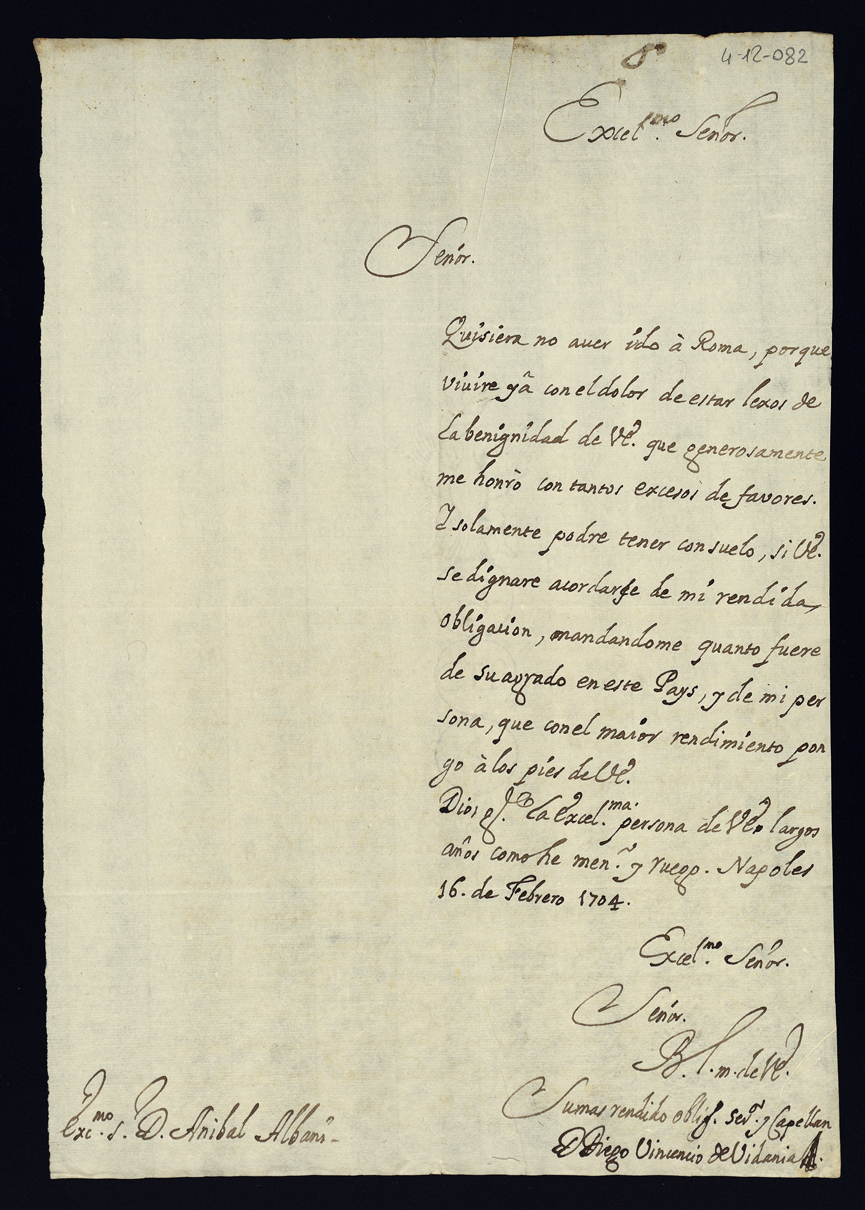 4-12-082
Excel.mo Señor.
Señor.
Quisiera no auer ido à Roma, porque
viuire yà con el dolor de estar lexos de
la benignidad de VEa. que generosamente
me honrò con tantos excesos de favores.
Y solamente podre tener consuelo, si VEa.
se dignare acordarse de mi rendida
obligacion, mandandome quanto fuere
de su agrado en este Pays, y de mi per
sona, que con el maior rendimiento pon
go à los pies de VEa.
Dios ge. la Excel.ma persona de VEa. largos
años como he men.r y ruego. Napoles
16. de Febrero 1704.
Excel.mo Señor.
Señor.
B. l. m. de VEa.
Su mas rendido oblig. ser.r y Capellan
D Diego Vincencio de Vidania
Exc.mo S. D. Anibal Albani